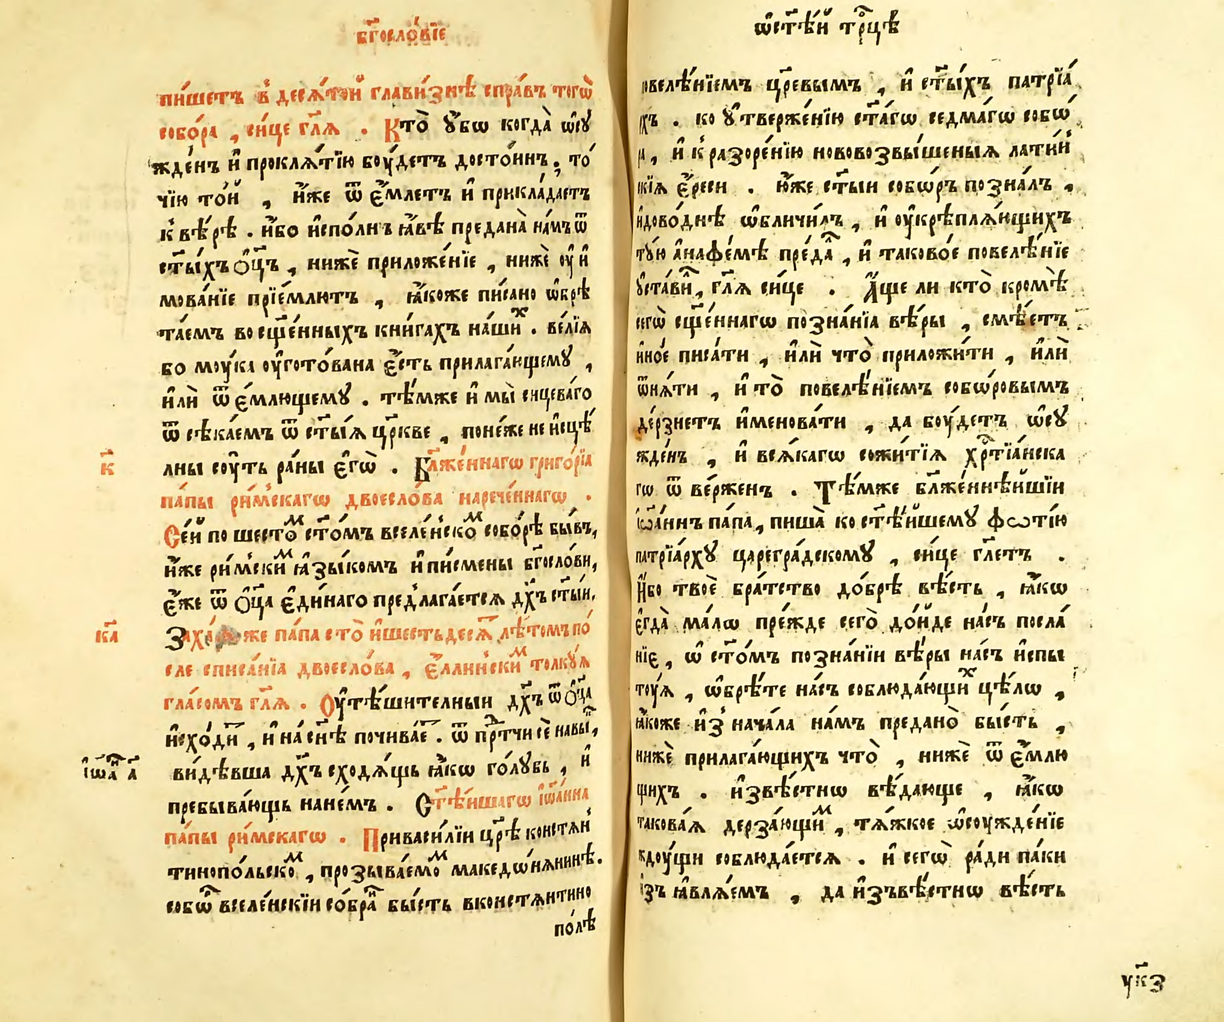 бг҃осло́вїе
пи́шетъ в҆ десѧ́той главѝзнѣ спра́въ того̀
собо́ра , си́це гл҃ѧ . Кто̀ ᲂу҆́бѡ когда̀ ѡ҆сꙋ
жде́нъ и҆ проклѧ́тїю боу́детъ досто́инъ ; то́
чїю то́й , и҆́же ѿ е҆́млетъ и҆ прикла́даетъ
к҆ вѣ́рѣ . и҆́бо и҆спо́лнь ꙗ҆́вѣ предана̀ на́мъ ѿ
ст҃ы́хъ ѻ҆ц҃ъ , нижѐ приложе́нїе , нижѐ ᲂу҆ и҆
мова́нїе прїе́млютъ , ꙗ҆́коже пи́сано ѡ҆брѣ
та́емъ во сщ҃е́нныхъ кни́гахъ на́шиⷯ . ве́лїѧ
бо моу́ка ᲂу҆гото́вана е҆́сть прилага́ющемꙋ ,
и҆лѝ ѿ е҆́млющемꙋ . тѣ́мже и҆ мы̀ сицева́го
ѿ сѣка́емъ ѿ ст҃ы́ѧ цр҃кве , поне́же не и҆сцѣ́
лны соу́ть ра́ны е҆гѡ̀ . Бл҃же́ннагѡ григо́рїа
па́пы ри́мскагѡ двоесло́ва нарече́ннагѡ .
Се́й по шесто́ⷨ ст҃о́мъ вселе́нскоⷨ собо́рѣ бы́въ,
и҆́же ри́мскиⷨ ꙗ҆зы́комъ и҆ пи́смены бг҃осло́ви,
е҆́же ѿ ѻ҆ц҃а е҆ди́наго предлага́етсѧ дх҃ъ ст҃ы́и.
же па́па сто̀ и҆ шестьдесѧ́ⷮ лѣ́томъ по
сле списа́нїа двоесло́ва , е҆́ллинскиⷨ толкꙋ́ѧ
гла́сомъ гл҃ѧ . Оу҆тѣ́шительныи дх҃ъ ѿ ѻ҆ц҃а
и҆схо́диⷮ , и҆ на сн҃ѣ почива́еⷮ . ѿ прⷣтчи сѐ навы́ⷦ,
ви́дѣвша дх҃ъ сходѧ́щь ꙗ҆́кѡ го́лꙋбь , и҆
пребыва́ющь на не́мъ . Ст҃ѣ́йшагѡ і҆ѡа́нна
па́пы ри́мскагѡ . При васи́лїи цр҃ѣ констѧн
тинопо́льскоⷨ , прозыва́емоⷨ македѡ́нѧнинѣ.
собѡⷬ҇ вселе́нскїи со́браⷩ бы́сть в констѧнтино
по́лѣ
к҃
ка҃
і҆ѡаⷩ҇ а҃
ѡ҆ ст҃ѣ́й трⷪ҇цѣ
овелѣ́нїемъ цр҃евымъ , и҆ ст҃ы́хъ патрїа́
хъ . ко ᲂу҆твержє́нїю ст҃а́гѡ седма́гѡ собѡ́
а , и҆ к҆ разоре́нїю нововозвы́шеныѧ лати́н
кїѧ е҆́реси . и҆́же ст҃ы́и собо́ръ позна́лъ ,
и҆ дово́днѣ ѡ҆бличи́лъ , и҆ ᲂу҆крѣплѧ́ющихъ
тꙋ́ю а҆на́фемѣ преда́ⷧ , и҆ таково́е повелѣ́нїе
ᲂу҆ста́виⷧ , гл҃ѧ си́це . А҆́ще ли кто̀ кромѣ̀
сегѡ̀ сщ҃е́ннагѡ позна́нїа вѣ́ры , смѣ́етъ
и҆но́е писа́ти , и҆лѝ что̀ приложи́ти , и҆лѝ
ѿнѧ́ти , и҆ то̀ повелѣ́нїемъ собо́ровымъ
де́рзнетъ и҆менова́ти , да боу́детъ ѡ҆сꙋ
жде́нъ , и҆ всѧ́кагѡ сожи́тїѧ хрⷭ҇тїа́нска
гѡ ѿ ве́рженъ . Тѣ́мже бл҃же́ннѣйшїи
і҆ѡа́ннъ па́па , пиша̀ ко ст҃ѣ́йшемꙋ фѡтїю
патрїа́рхꙋ цареградскомꙋ , си́це гл҃етъ .
И҆́бо твоѐ бра́тство до́брѣ вѣ́сть , ꙗ҆́кѡ
е҆гда̀ ма́лѡ пре́жде сего̀ до́йде на́съ посла́
нїе , ѡ҆ ст҃о́мъ позна́нїи вѣ́ры на́съ и҆спы
тоу́ѧ , ѡ҆брѣ́те на́съ соблюда́ющиⷯ цѣ́лѡ ,
ꙗ҆́коже и҆з̾ нача́ла на́мъ предано̀ бы́сть ,
нижѐ прилага́ющихъ что̀ , нижѐ ѿ е҆́млю
щихъ . и҆звѣ́стнѡ вѣ́дающе , ꙗ҆́кѡ
такова́ѧ дерза́ющиⷨ , тѧ́жкое ѡ҆соужде́нїе
ждоу́щи соблюда́етсѧ . и҆ сегѡ̀ ра́ди па́ки
ꙗ҆влѧ́емъ , да и҆звѣ́стнѡ вѣ́сть
ук҃з